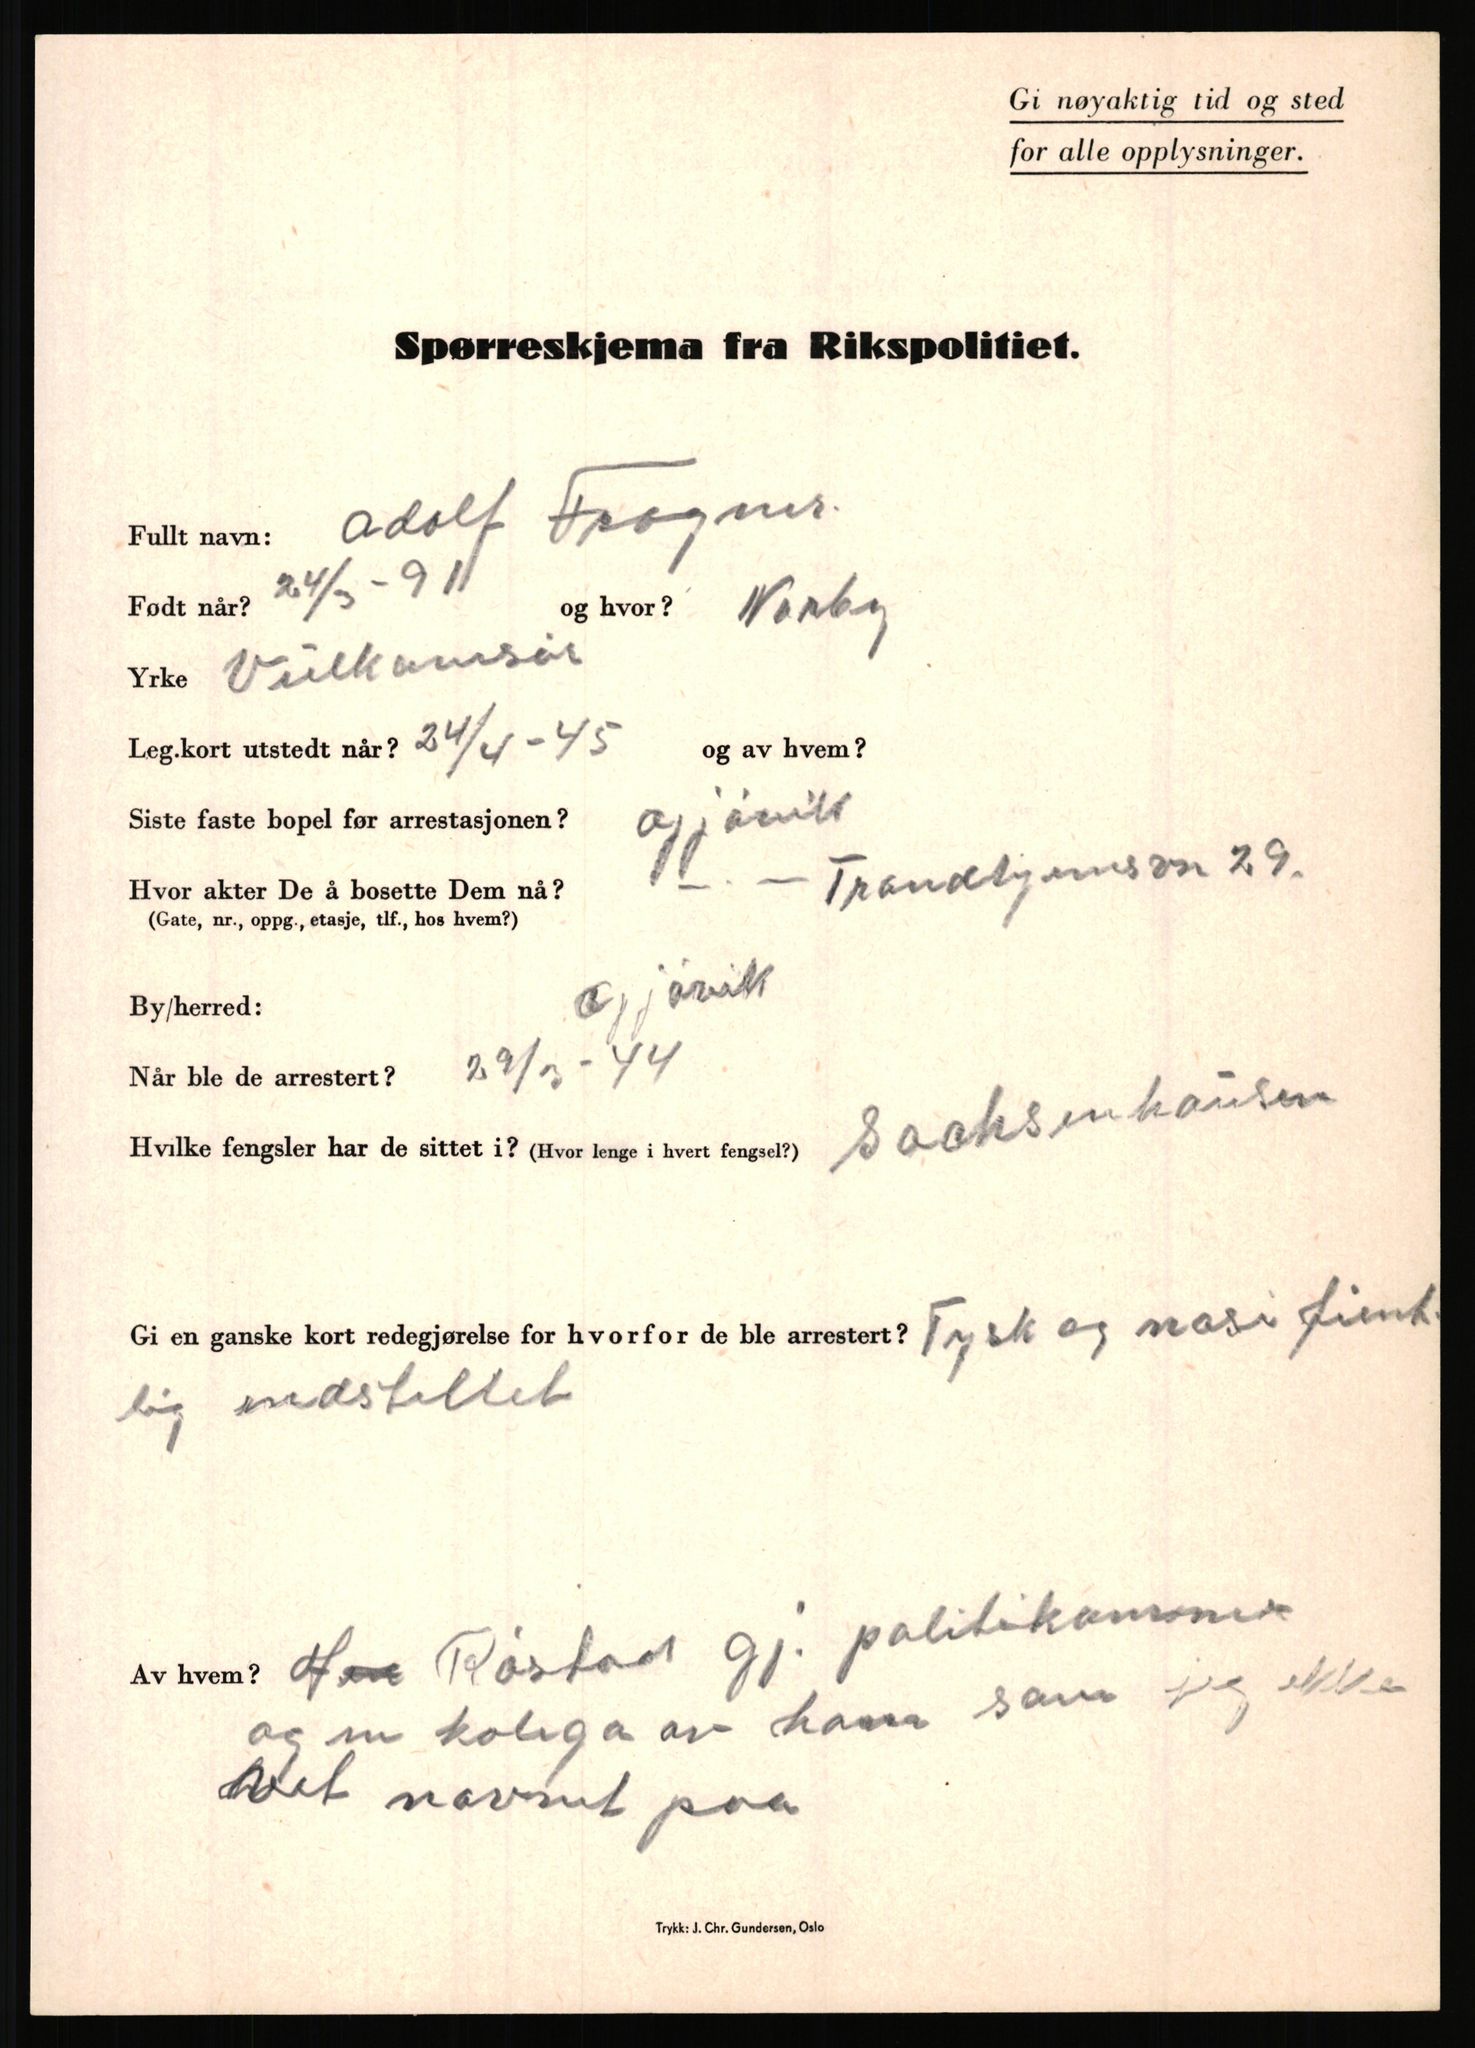 Gi nøyaktig tid og sted
for alle opplysninger.
Spørreskjema fra Rikspolitiet.
Fullt navn: Adolf Frogner.
Født når? 24/3-91 og hvor? Narby
Yrke Vülkanisør
Leg.kort utstedt når? 24/4-45 og av hvem?
Siste faste bopel før arrestasjonen? Gjøvik
Hvor akter De å bosette Dem nå? — . — Trondhjemsvn 29.
(Gate, nr., oppg., etasje, tlf., hos hvem?)
By/herred: Gjøvik
Når ble de arrestert? 29/3-44
Hvilke fengsler har de sittet i? (Hvor lenge i hvert fengsel?) Sachsenhaüsen
Gi en ganske kort redegjørelse for hvorfor de ble arrestert? Tysk og nasi fient-
lig indstellet
Av hvem? Røstad gj. politikammer
og en kolega av ham som jeg ikke
Vet navnet paa
Trykk: J. Chr. Gundersen, Oslo